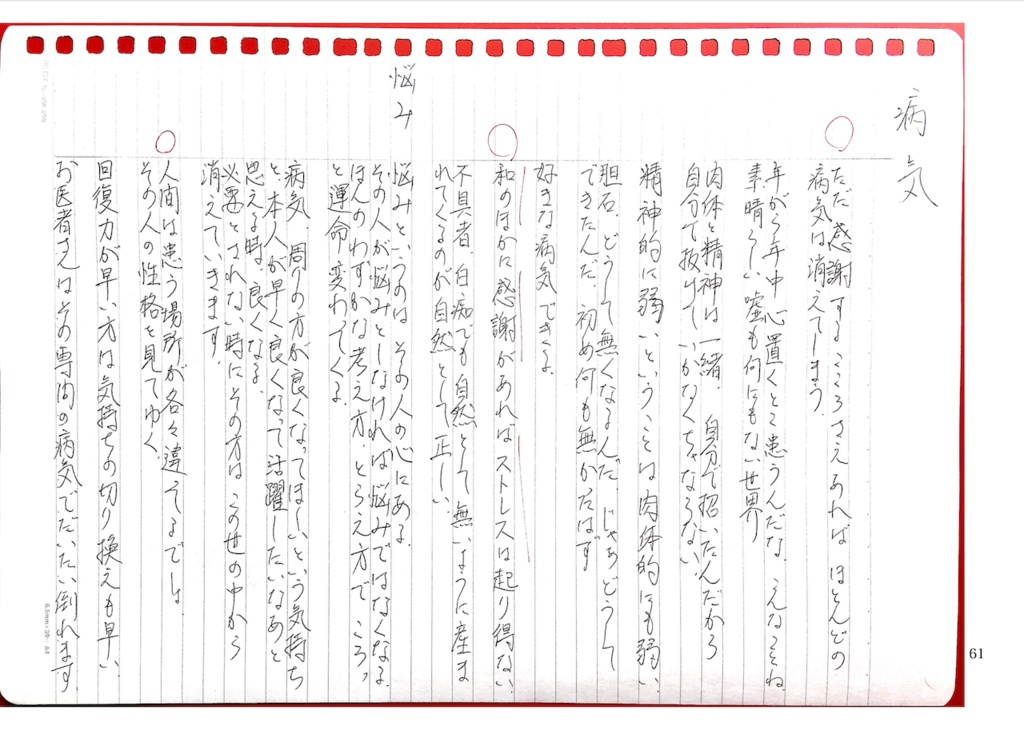 病気
ただ感謝するこころさえあれば ほとんどの
病気は消えてしまう。
年がら年中心置くとこ患うんだな。こんなこそね
素晴らしい嘘も何にもない世界
肉体と精神は一緒。自分で招いたんだから
自分で抜けていかなくちゃならない。
精神的に弱いということは肉体的にも弱い。
胆石、どうして無くなるんだ じゃあどうして
できたんだ。初め何も無かたはず
好きな病気できる。
和のほかに感謝があればストレスは起り得ない
不具者、白痴でも自然として無いように産ま
れてくるのが自然として正しい
悩み
悩みというのは その人の心にある。
その人が悩みとしなければ悩みではなくなる
ほんのわずかな考え方、とらえ方で ころっ
と運命変わってくる。
病気 周りの方が良くなってほしいという気持ち
と、本人が早く良くなって活躍したいなあと
思える時、良くなる。
必要とされない時にその方はこの世の中から
消えていきます。
人間は患う場所が各々違ってるでしょ
その人の性格を見てゆく
回復力が早い方は気持ちの切り換えも早い
お医者さんはその専門の病気でだいたい倒れます
6.5mm×36 A4
61